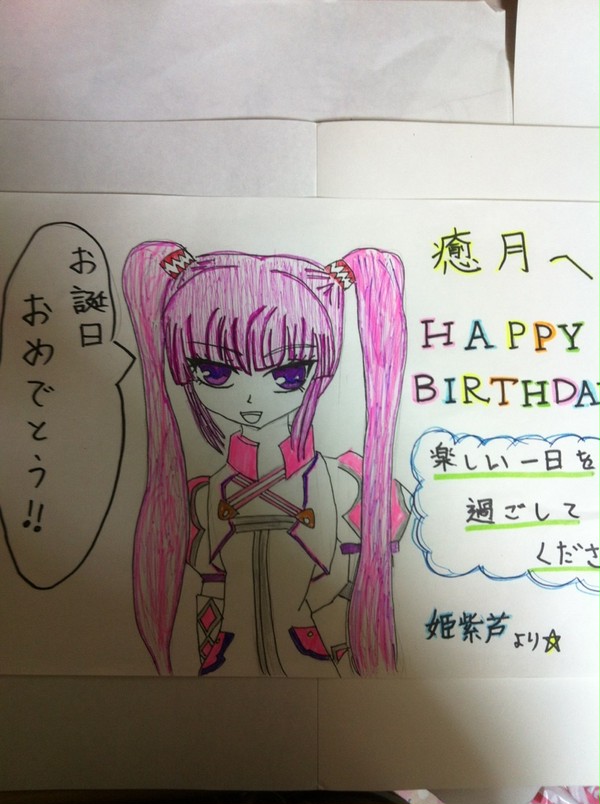 お誕日
おめでとう!!
癒月へ
HAPPY
BIRTHDA
楽しい一日を
過ごして
くださ
姫紫芦より☆